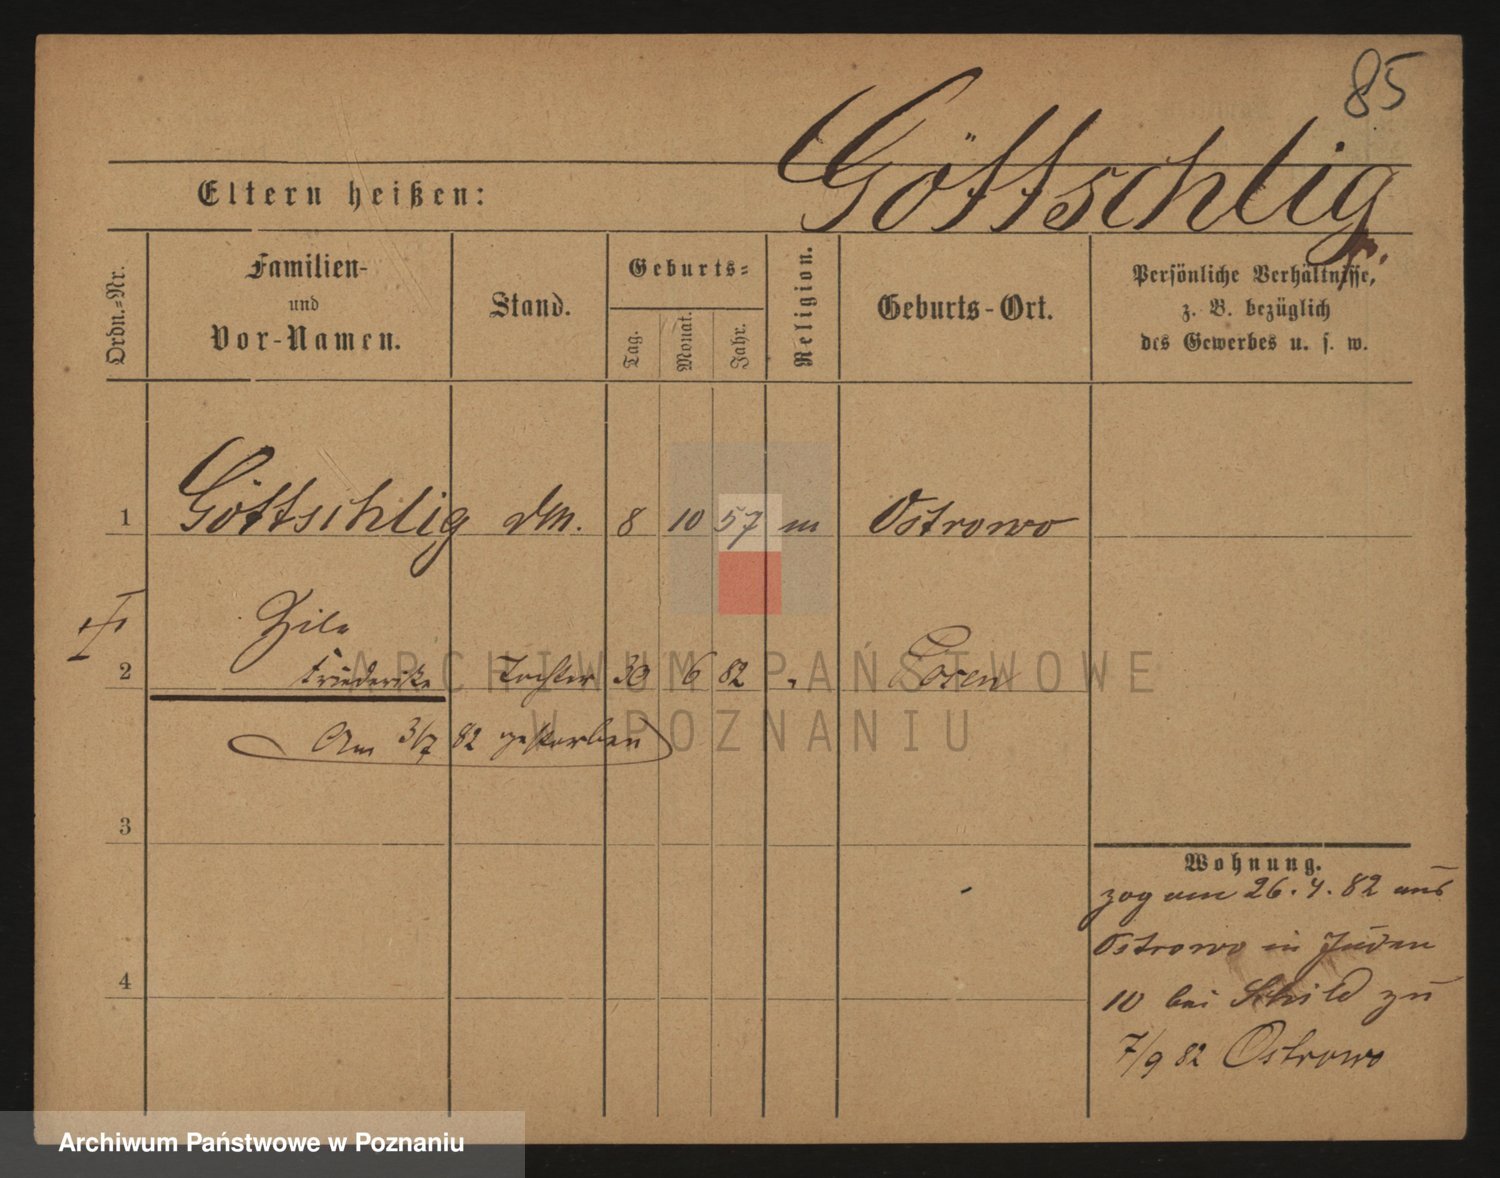 85
Göttschlig
Eltern heißen:
Ordn.-Nr.
Familien-
und
Vor-Namen.
Stand.
Geburts-
Tag.
Monat.
Jahr.
Religion.
Geburts-Ort.
Persönliche Verhältnisse,
z. B. bezüglich
des Gewerbes u. s. w.
1 Göttschlig 8 10 57 m Ostrowo
2 Friederike Tochter 30 6 82 " Posen
Am 3/7 82 gestorben
3
4
Wohnung.
zog am 26. 4. 82 aus
Ostrowo in Juden
10 bei Schild zu
7/9 82 Ostrowo
ARCHIWUM PAŃSTWOWE
W POZNANIU
Archiwum Państwowe w Poznaniu